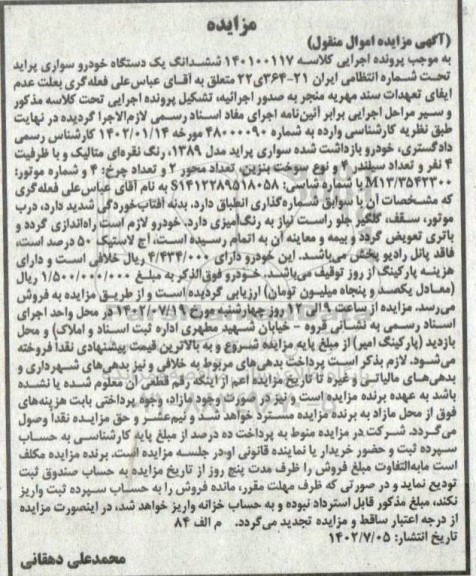 مزایده
(آگهی مزایده اموال منقول)
به موجب پرونده اجرایی کلاسه ۱۴۰۱۰۰۱۱۷ ششدانگ یک دستگاه خودرو سواری پراید
تحت شماره انتظامی ایران ۲۱-۳۶۴ی۲۲ متعلق به آقای عباس‌علی فعله‌گری بعلت عدم
ایفای تعهدات سند مهریه منجر به صدور اجرائیه، تشکیل پرونده اجرایی تحت کلاسه مذکور
و سیر مراحل اجرایی برابر آئین‌نامه اجرای مفاد اسناد رسمی لازم‌الاجرا گردیده در نهایت
طبق نظریه کارشناسی وارده به شماره ۴۸۰۰۰۰۹۰ مورخه ۱۴۰۲/۰۱/۱۴ کارشناس رسمی
دادگستری، خودرو بازداشت شده سواری پراید مدل ۱۳۸۹، رنگ نقره‌ای متالیک و با ظرفیت
۴ نفر و تعداد سیلندر ۴ و نوع سوخت بنزین، تعداد محور ۲ و تعداد چرخ: ۴ و شماره موتور:
M۱۳/۳۵۴۲۳۰۰ با شماره شاسی: S۱۴۱۲۲۸۹۵۱۸۰۵۸ به نام آقای عباس‌علی فعله‌گری
که مشخصات آن با سوابق شماره‌گذاری انطباق دارد، بدنه آفتاب‌خوردگی شدید دارد، درب
موتور، سقف، گلگیر جلو راست نیاز به رنگ‌آمیزی دارد. خودرو لازم است راه‌اندازی گردد و
باتری تعویض گردد و بیمه و معاینه آن به اتمام رسیده است، آج لاستیک ۵۰ درصد است،
فاقد پانل رادیو پخش می‌باشد. این خودرو دارای ۴/۴۳۴/۰۰۰ ریال خلافی است و دارای
هزینه پارکینگ از روز توقیف می‌باشد. خودرو فوق‌الذکر به مبلغ ۱/۵۰۰/۰۰۰/۰۰۰ ریال
(معادل یکصد و پنجاه میلیون تومان) ارزیابی گردیده است و از طریق مزایده به فروش
می‌رسد. مزایده از ساعت ۹ الی ۱۲ روز چهارشنبه مورخ ۱۴۰۲/۰۷/۱۹ در محل واحد اجرای
اسناد رسمی به نشانی قروه - خیابان شهید مطهری اداره ثبت اسناد و املاک) و محل
بازدید (پارکینگ امیر) از مبلغ پایه مزایده شروع و به بالاترین قیمت پیشنهادی نقداً فروخته
می‌شود. لازم بذکر است پرداخت بدهی‌های مربوط به خلافی و نیز بدهی‌های شهرداری و
بدهی‌های مالیاتی و غیره تا تاریخ مزایده اعم از اینکه رقم قطعی آن معلوم شده یا نشده
باشد به عهده برنده مزایده است و نیز در صورت وجود مازاد، وجوه پرداختی بابت هزینه‌های
فوق از محل مازاد به برنده مزایده مسترد خواهد شد و نیم‌عشر و حق مزایده نقداً وصول
می‌گردد. شرکت در مزایده منوط به پرداخت ده درصد از مبلغ پایه کارشناسی به حساب
سپرده ثبت و حضور خریدار یا نماینده قانونی او در جلسه مزایده است. برنده مزایده مکلف
است مابه‌التفاوت مبلغ فروش را ظرف مدت پنج روز از تاریخ مزایده به حساب صندوق ثبت
تودیع نماید و در صورتی که ظرف مهلت مقرر، مانده فروش را به حساب سپرده ثبت واریز
نکند، مبلغ مذکور قابل استرداد نبوده و به حساب خزانه واریز خواهد شد، در اینصورت مزایده
از درجه اعتبار ساقط و مزایده تجدید می‌گردد. م الف ۸۴
تاریخ انتشار: ۱۴۰۲/۷/۰۵
محمدعلی دهقانی